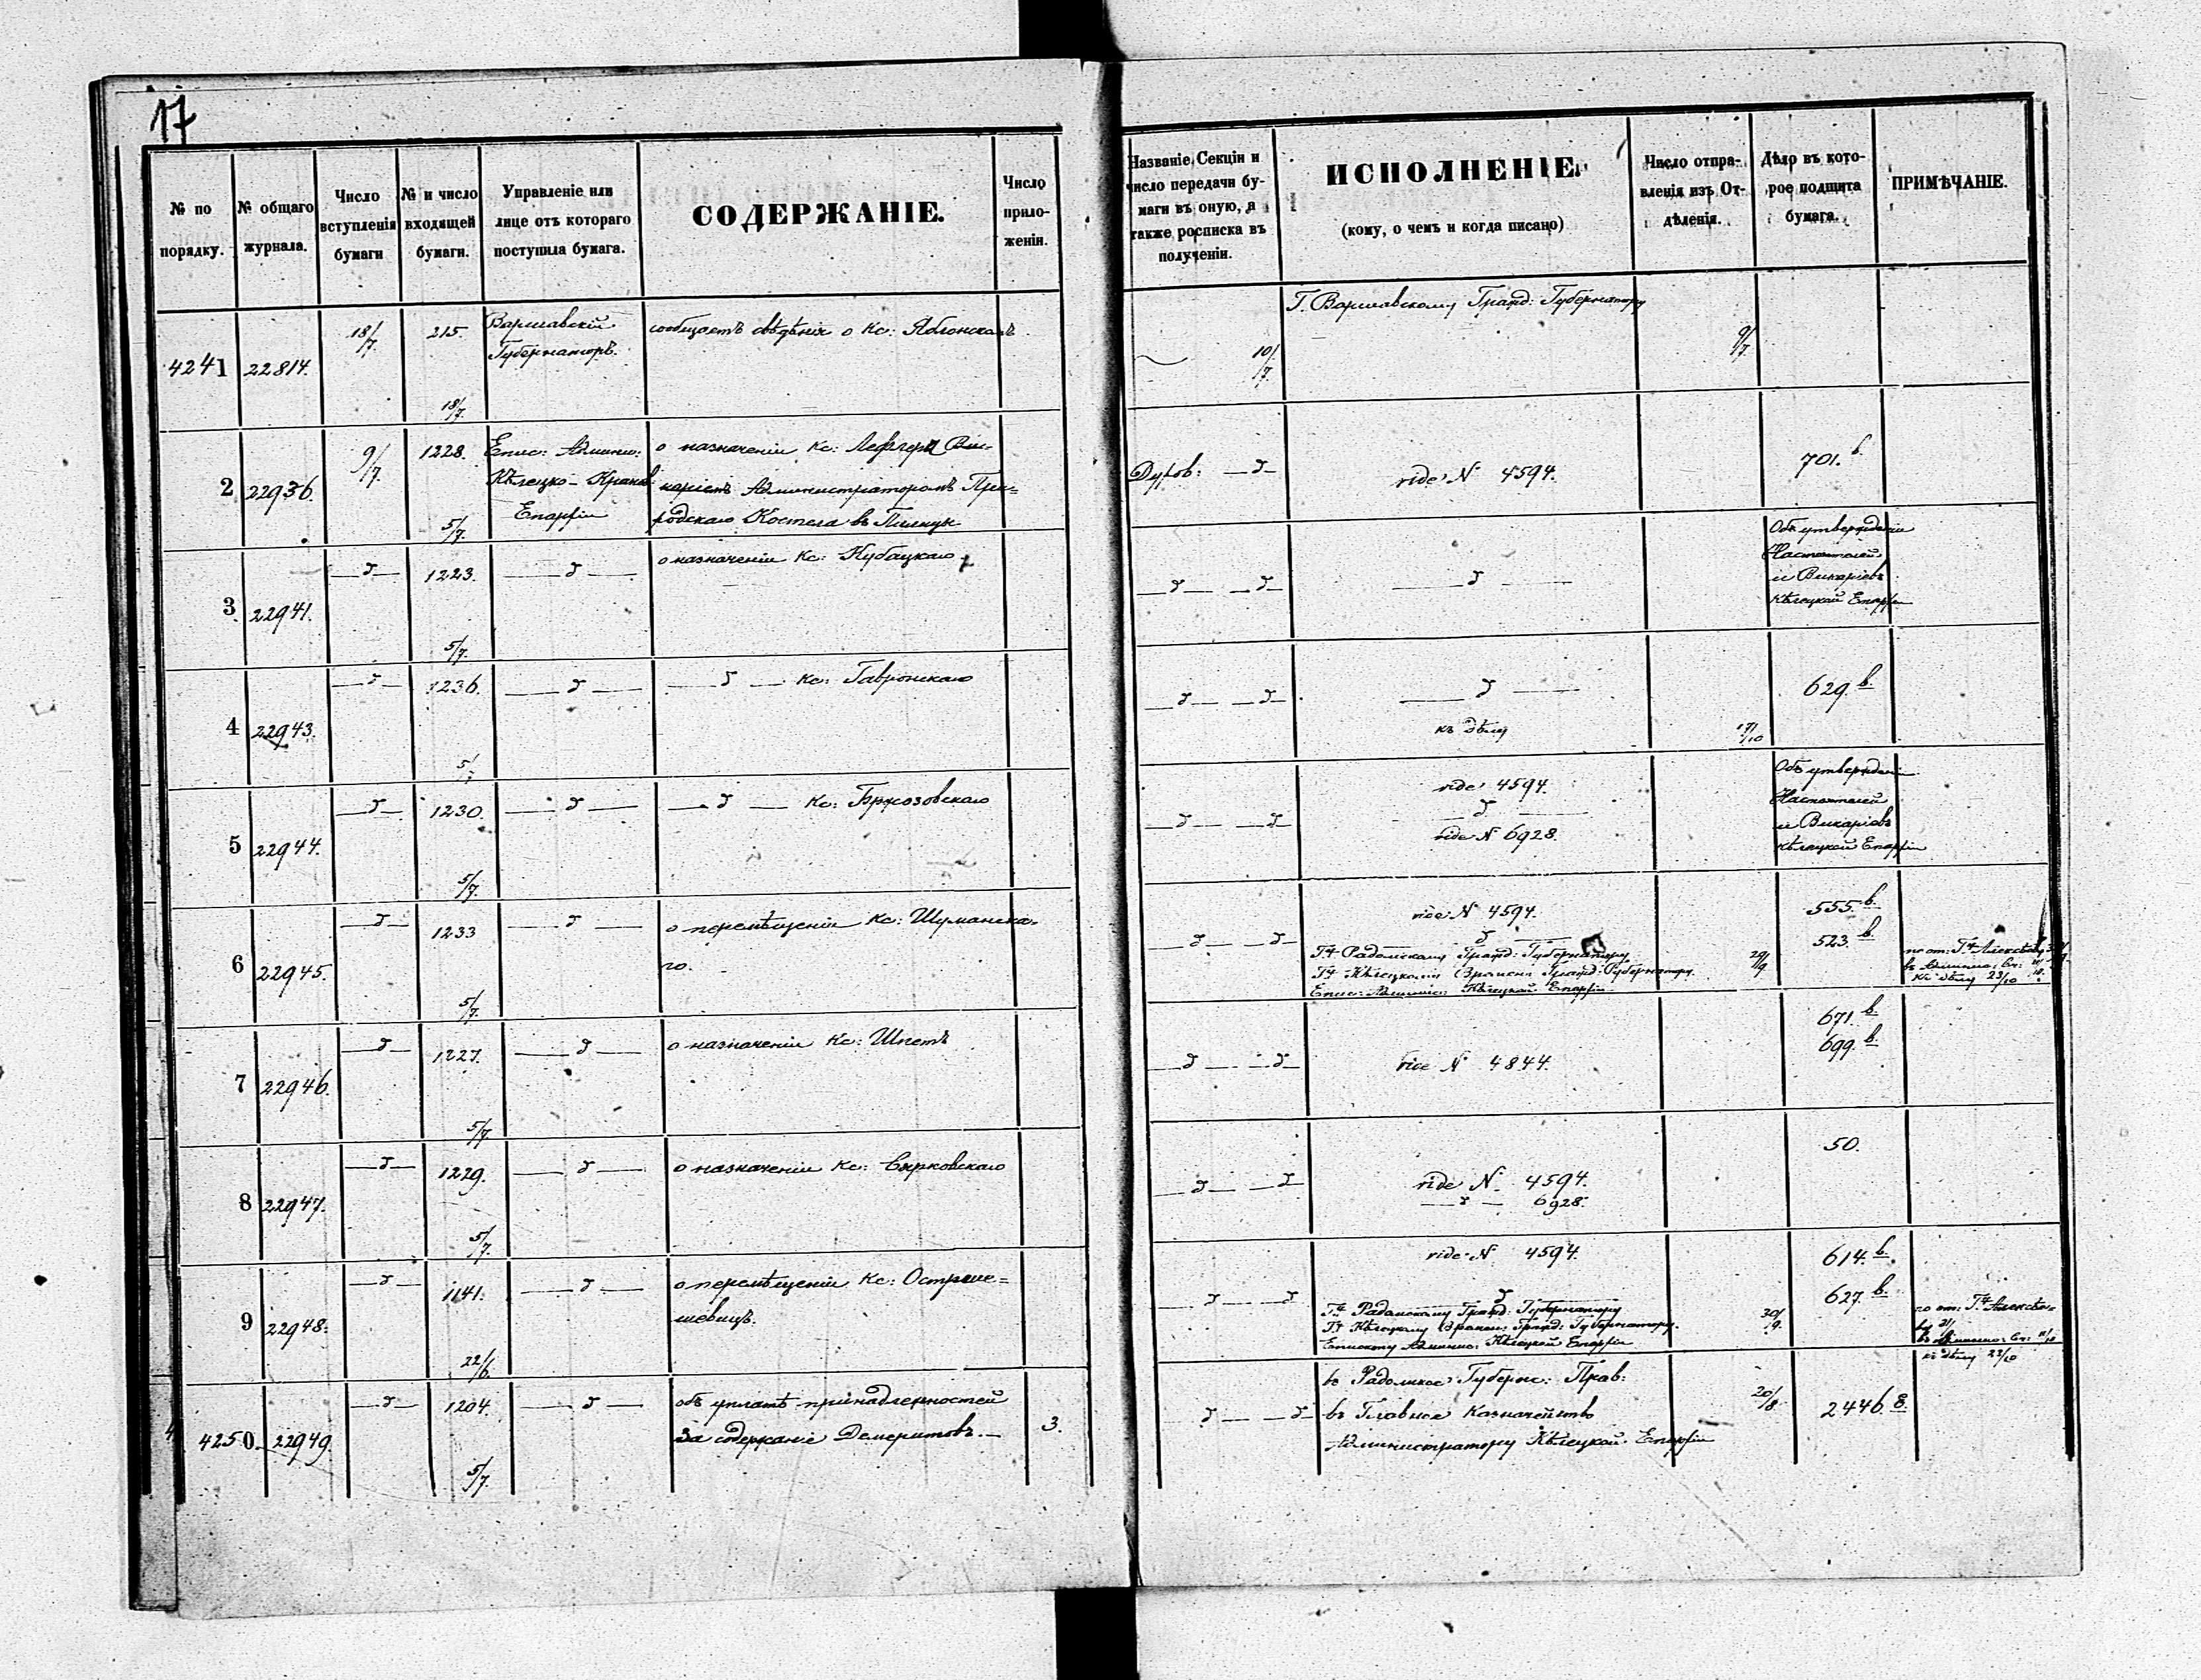 17
№ по порядку.
№ общаго журнала.
Число вступленія бумаги
№ и число входящей бумаги.
Управленіе или лице отъ котораго поступила бумага.
СОДЕРЖАНІЕ.
Число приложеніи.
Названіе Секціи и число передачи бумаги въ оную, а также росписка въ полученіи.
ИСПОЛНЕНІЕ.
(кому, о чемъ и когда писано)
Число отправленія изъ Отдѣленія.
Дѣло въ которое подшита бумага.
ПРИМѢЧАНІЕ.
4241 22814. 18/7. 215. 18/7.
Варшавскій
Губернаторъ.
сообщаетъ свѣдѣнія о Кс: Яблонскомъ
10/7.
Г. Варшавскому Гражд: Губернатору
9/7.
2 22936. 9/7. 1228. 5/7.
Епис: Админис:
Кѣлецко-Краков:
Епархіи
о назначеніи Кс: Лефлера Ви-
каріемъ Администраторомъ При-
родскаго Костела въ Пилицы
— δ —
vide № 4594.
701. b.
3 22941. — δ — 1223. 5/7. — δ —
о назначеніи Кс: Кубацкаго
— δ — — δ —
— δ —
Объ утвержденіи
Настоятелей
и Викаріевъ
Кѣлецкой Епархіи
4 22943. — δ — 1236. 5/7 — δ —
— δ — Кс: Гавронскаго
— δ — — δ —
— δ —
къ дѣлу
17/10
629. b.
5 22944. — δ — 1230. 5/7. — δ —
— δ — Кс: Бржозовскаго
— δ — — δ —
vide 4594.
— δ —
vide № 6928.
Объ утвержденіи
Настоятелей
и Викаріевъ
Кѣлецкой Епархіи
6 22945. — δ — 1233 5/7. — δ —
о перемѣщеніи Кс: Шуманска-
го.
— δ — — δ —
vide № 4594.
— δ —
Гну Радомскому Гражд: Губернатору
Гну Кѣлецкому Времен: Гражд: Губернатору.
Епис: Админис: Кѣлецкой Епархіи.
555. b.
523. b.
къ дѣлу 23/10
7 22946. — δ — 1227. 5/7. — δ —
о назначеніи Кс: Шпетъ
— δ — — δ —
vide № 4844.
671. b.
699. b.
8 22947. — δ — 1229. 5/7. — δ —
о назначеніи Кс: Сырковскаго
— δ — — δ —
vide №. 4594.
— δ — 6928.
50.
9 22948. — δ — 1141. 22/6. — δ —
о перемѣщеніи Кс: Остроме=
шевицъ.
— δ — — δ —
vide № 4594.
— δ —
Гну Радомскому Гражд: Губернатору
Гну Кѣлецкому Времен: Гражд: Губернатору.
Епископу Админис: Кѣлецкой Епархіи
614. b.
627. b.
къ дѣлу 23/10
4250 22949. — δ — 1204. 5/7. — δ —
объ уплатѣ принадлежностей
за содержаніе Демеритовъ. —
3.
— δ — — δ —
въ Радомское Губерн: Прав:
въ Главное Казначейство
Администратору Кѣлецкой Епархіи
20/8
2446. 8.